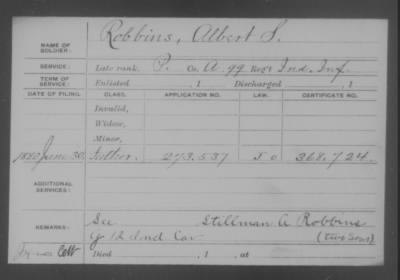 Robbins, Albert S.
NAME OF SOLDIER:
SERVICE: Late rank, P. Co. A. 99 Reg't Ind. Inf.
TERM OF SERVICE: Enlisted , 1 Discharged , 1
DATE OF FILING. CLASS. APPLICATION NO. LAW. CERTIFICATE NO.
Invalid,
Widow,
Minor,
1880 June 30. Father. 273.537 368.724.
ADDITIONAL SERVICES:
REMARKS: See Stillman A Robbins
G 12 Ind Cav (two sons)
Died , 1 , at